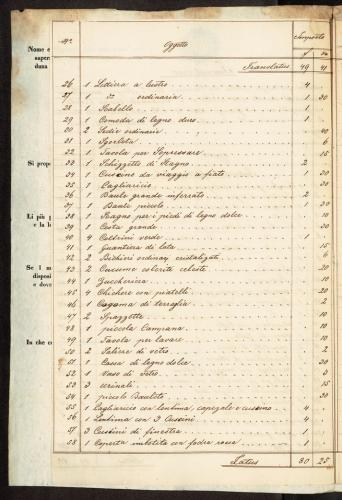 Nº Oggetto Importo
f x
Translatus 49 41
26 1 Lettiera a lustro 4
27 1 dº ordinaria 1 30
28 1 Scabello 1
29 1 Comoda di legno duro 1
30 2 Sedie ordinarie 40
31 1 Sporletta 6
32 1 Tavola per Sopressare 15
33 1 Schizzetto di Stagno 2
34 1 Cuscino da viaggio a fiato 1 30
35 1 Pagliariccio 30
36 1 Baule grande inferrato 2
37 1 Baule piccolo 1 30
38 1 per i piedi di legno dolce 10
39 1 Cesta grande 30
40 4 Coltrini verde 1
41 1 Guantiera di lata 15
42 2 Bichieri ordinarj cristalizati 6
43 2 Cuccume colorite celesti 20
44 1 Zuccheriera 10
45 4 Chichere con piatelli 20
46 1 Cogoma di terraglia 2
47 2 Spazzette 10
48 1 piccola Campana 10
49 1 Tavola per lavare 10
50 2 Saliere di vetro 2
51 1 Cassa di legno dolce 30
52 1 Vaso di Vetro 5
53 3 urinali 15
54 1 piccolo Bauletto 30
55 1 Pagliariccio con Lentima, capezale e cussino 4
56 1 Lentima con 3 Cussini 4
57 3 Cussini di finestra 1
58 1 Coperta imbotita con fodra rossa 1
Latus 80 25
Nome e
super
duna
Si prop
Li più
e la l
Se i m
disposi
e dove
In che c